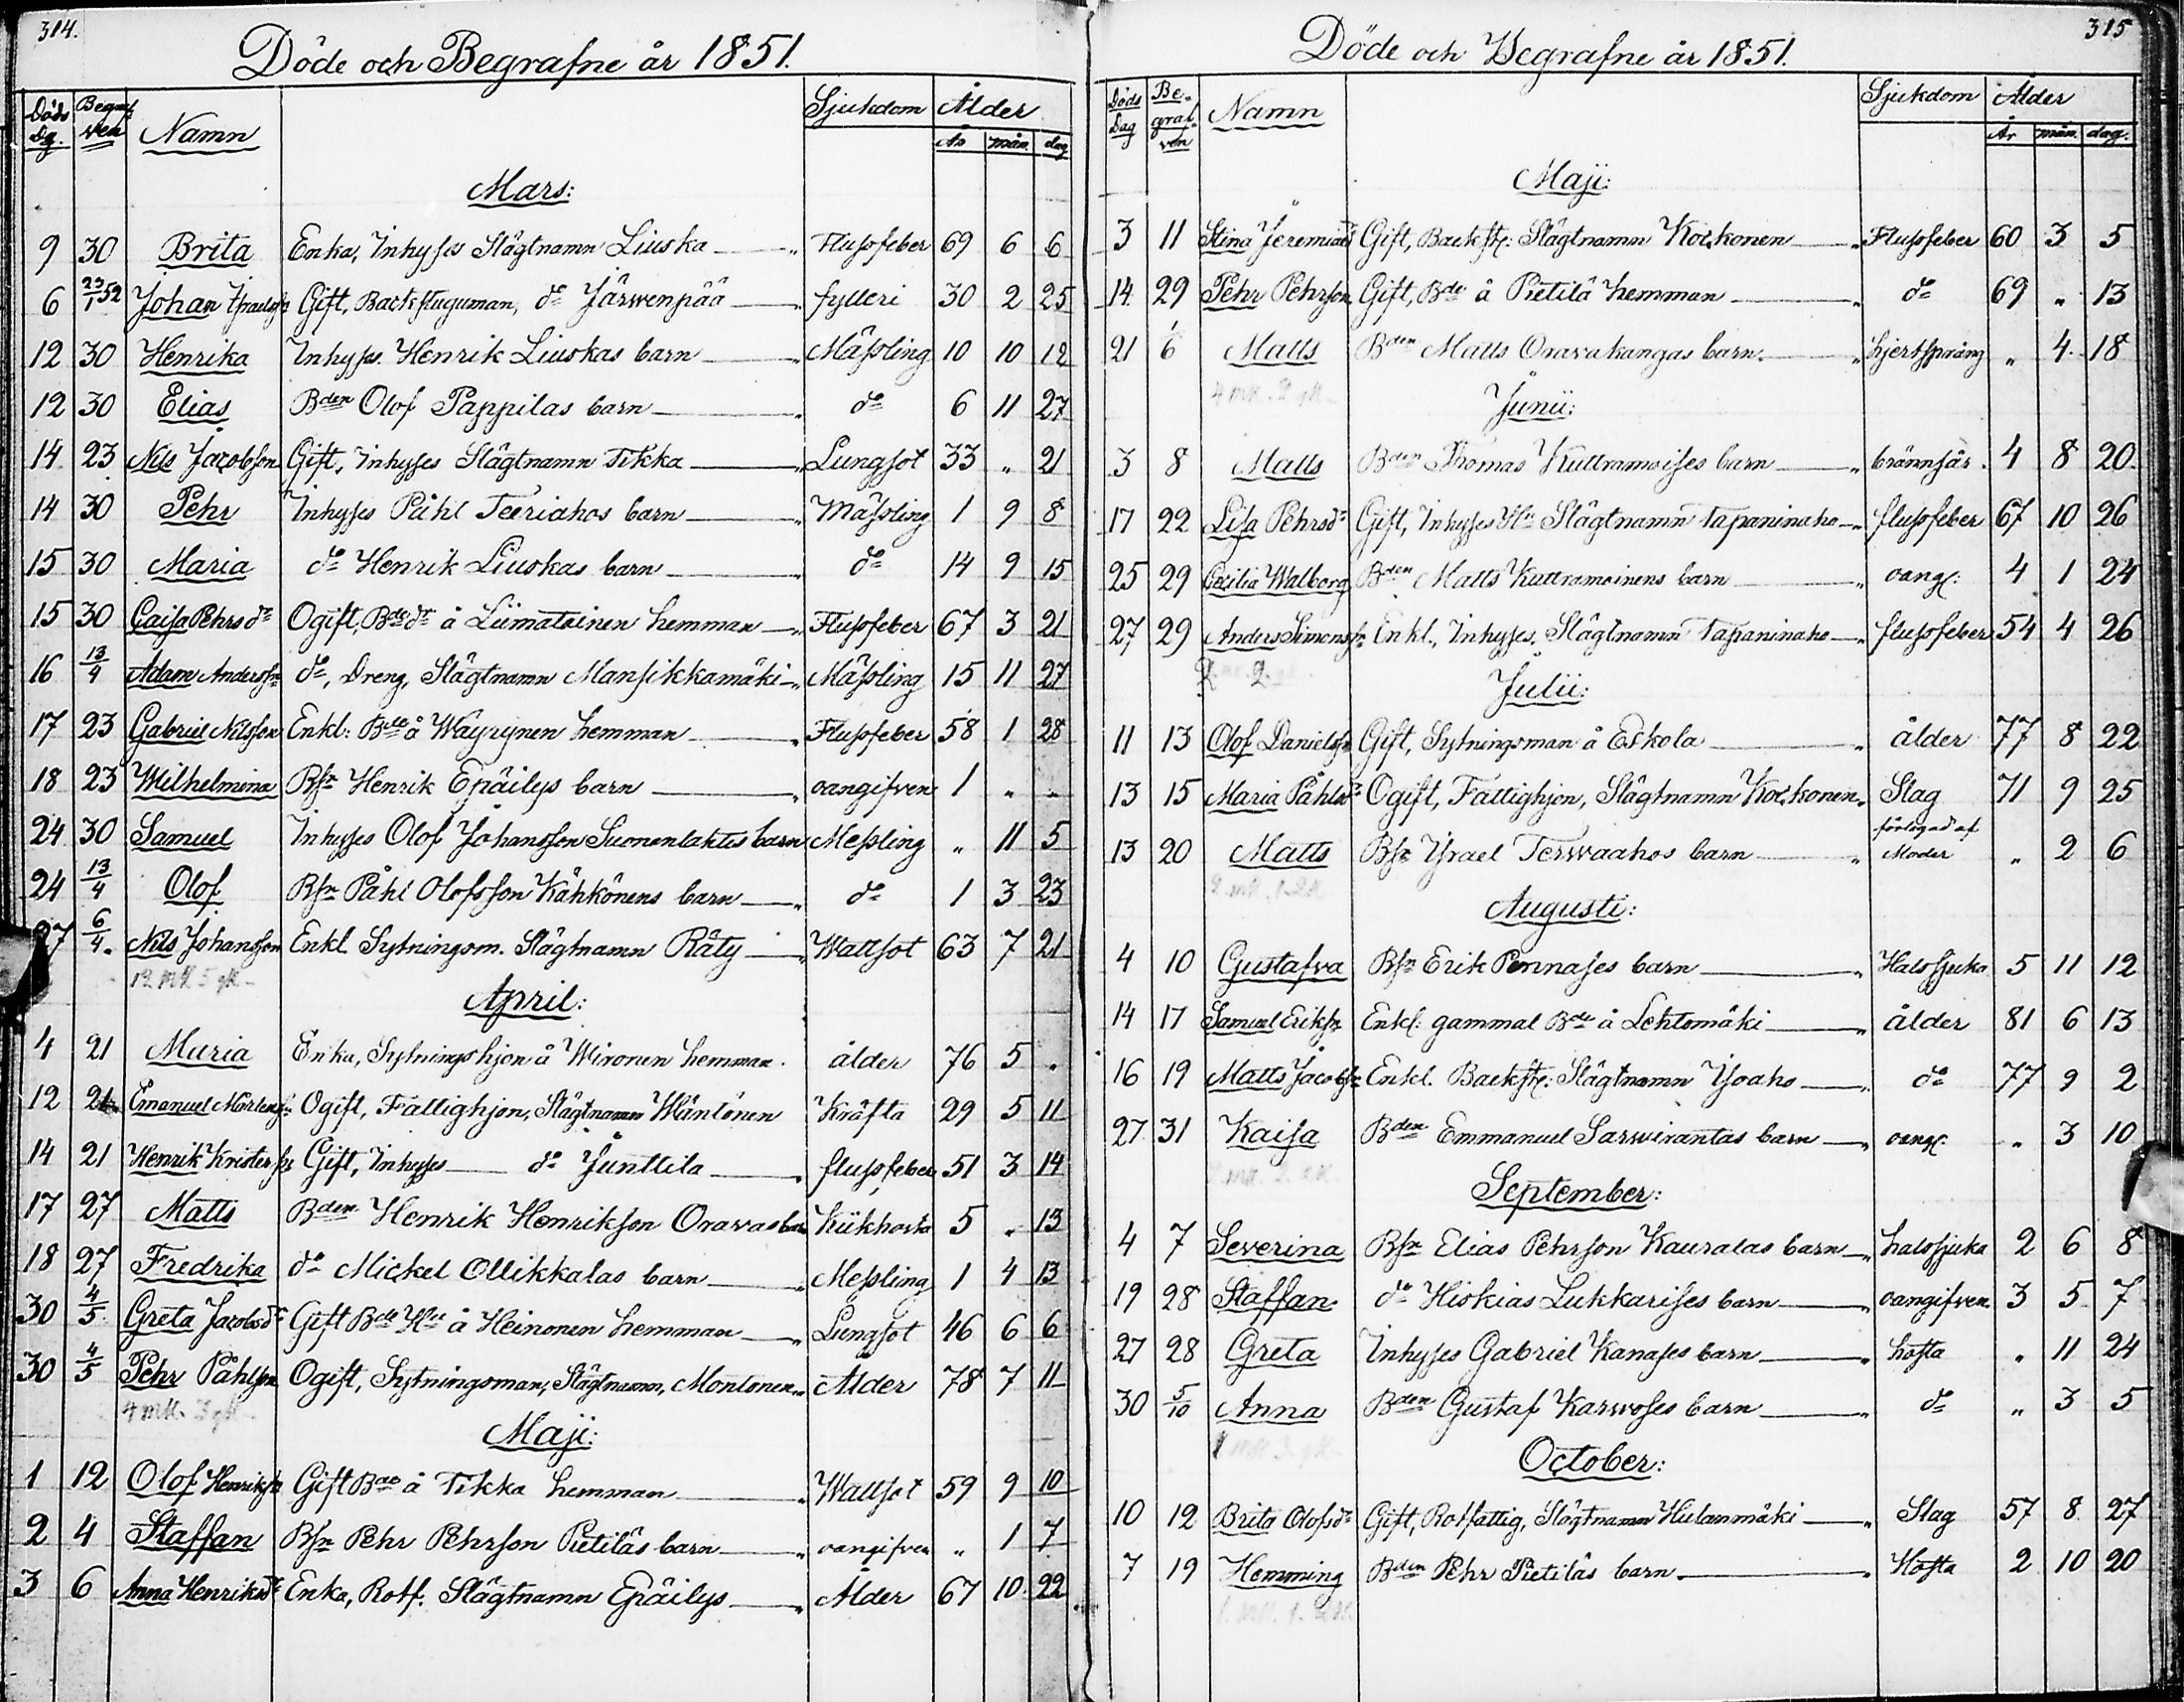 314.
Döde och Begrafne år 1851.
Döds Dg. Begraf ven Namn Sjukdom Ålder
År mån. dag
Mars:
9 30 Brita Enka, Inhyses Slägtnamn Liuska Flussfeber 69 6 6
6 23/1 52 Johan Gift, Backstuguman, do Järwenpää fylleri 30 2 25
12 30 Henrika Inhyses Henrik Liuskas barn Mässling 10 10 12
12 30 Elias Bden Olof Pappilas barn do 6 11 27
14 23 Nils Jacobson Gift, Inhyses Slägtnamn Tikka Lungsot 33 " 21
14 30 Pehr Inhyses Påhl Teeriahos barn Mässling 1 9 8
15 30 Maria do Henrik Liuskas barn do 14 9 15
15 30 Caisa Pehrsdr Ogift, Bdedr å Liimatainen hemman Flussfeber 67 3 21
16 13/4 Adam Andersson do, Dreng, Slägtnamn Mansikkamäki Mässling 15 11 27
17 23 Gabriel Nilsson Enkl: Bde å Wäyrynen hemman Flussfeber 58 1 28
18 23 Wilhelmina Bsn Henrik Epäilys barn oangifven 1 " "
24 30 Samuel Inhyses Olof Johansson Suonenlahtis barn Messling " 11 5
24 13/4 Olof Bsn Påhl Olofsson Kähkönens barn do 1 3 23
27 6/4 Nils Johansson Enkl. Sytningsm. Slägtnamn Räty Wattsot 63 7 21
12 mk. 5 qk.
April:
4 21 Maria Enka, Sytningshjon å Wironen hemman ålder 76 5 "
12 21 Emanuel Mårtenss. Ogift, Fattighjon, Slägtnamn Mäntönen Kräfta 29 5 11
14 21 Henrik Kristerss Gift, Inhyses do Junttila flussfeber 51 3 14
17 27 Matts Bden Henrik Henrikson Oravas barn Kikhosta 5 " 13
18 27 Fredrika do Mickel Ollikkalas barn Messling 1 4 13
30 4/5 Greta Jacobsdr Gift Bde Hu å Heinonen hemman Lungsot 46 6 6
30 4/5 Pehr Påhlson Ogift, Sytningsman, Slägtnamn, Montonen Ålder 78 7 11
4 mk. 3 qk.
Maji:
1 12 Olof Henriksn Gift Bde å Tikka hemman Wattsot 59 9 10
2 4 Staffan Bsn Pehr Pehrson Pietiläs barn oangifven " 1 7
3 6 Anna Henriksdr Enka, Rotf. Slägtnamn Epäilys Ålder 67 10 22
315
Döde och Begrafne år 1851.
Döds Dag Be- graf- ven Namn Sjukdom Ålder
År mån. dag.
Maji:
3 11 Stina Jeremiaedr Gift, Backstg: Slägtnamn Korkonen Flussfeber 60 3 5
14 29 Pehr Pehrson Gift, Bde å Pietilä hemman do 69 " 13
21 6 Matts Bden Matts Oravakangas barn hjertsprång " 4 18
4 mk. 2 qk.
Junii:
3 8 Matts Bden Thomas Kuttramoises barn brännsår 4 8 20
17 22 Lisa Pehrsdr Gift, Inhyses Hu Slägtnamn Tapaninaho flussfeber 67 10 26
25 29 Cecilia Walborg Bden Matts Kuttramoinens barn oangf: 4 1 24
27 29 Anders Simonssn Enkl., Inhyses, Slägtnamn Tapaninaho flussfeber 54 4 26
Julii:
11 13 Olof Danielssn Gift, Sytningsman å Eskola ålder 77 8 22
13 15 Maria Påhlsdr Ogift, Fattighjon, Slägtnamn Korkonen Slag 71 9 25
13 20 Matts Bsn Israel Terwaahos barn förlegad af Moder " 2 6
Augusti:
4 10 Gustafva Bsn Erik Pennases barn Halssjuka 5 11 12
14 17 Samuel Erikssn Enkl: gammal Bde å Lehtomäki ålder 81 6 13
16 19 Matts Jacobssn Enkl. Backstg: Slägtnamn Isoaho do 77 9 2
27 31 Kaisa Bden Emmanuel Sarwirantas barn oangf: " 3 10
September:
4 7 Severina Bsn Elias Pehrson Kauralas barn halssjuka 2 6 8
19 28 Staffan do Hiskias Lukkarises barn oangifven 3 5 7
27 28 Greta Inhyses Gabriel Kanases barn hosta " 11 24
30 5/10 Anna Bden Gustaf Karwoses barn do " 3 5
October:
10 12 Brita Olofsdr Gift, Rotfattig, Slägtnamn Hulanmäki Slag 57 8 27
7 19 Hemming Bden Pehr Pietiläs barn Hosta 2 10 20